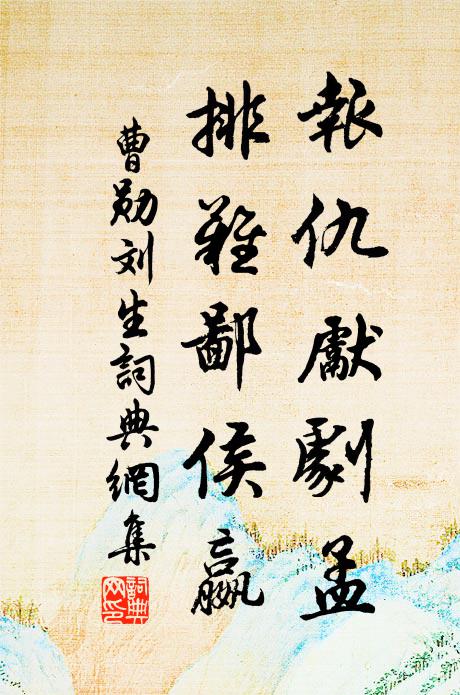 報仇獻劇孟
排難鄙侯嬴
曹勛刘生詞典網集
詞典网印